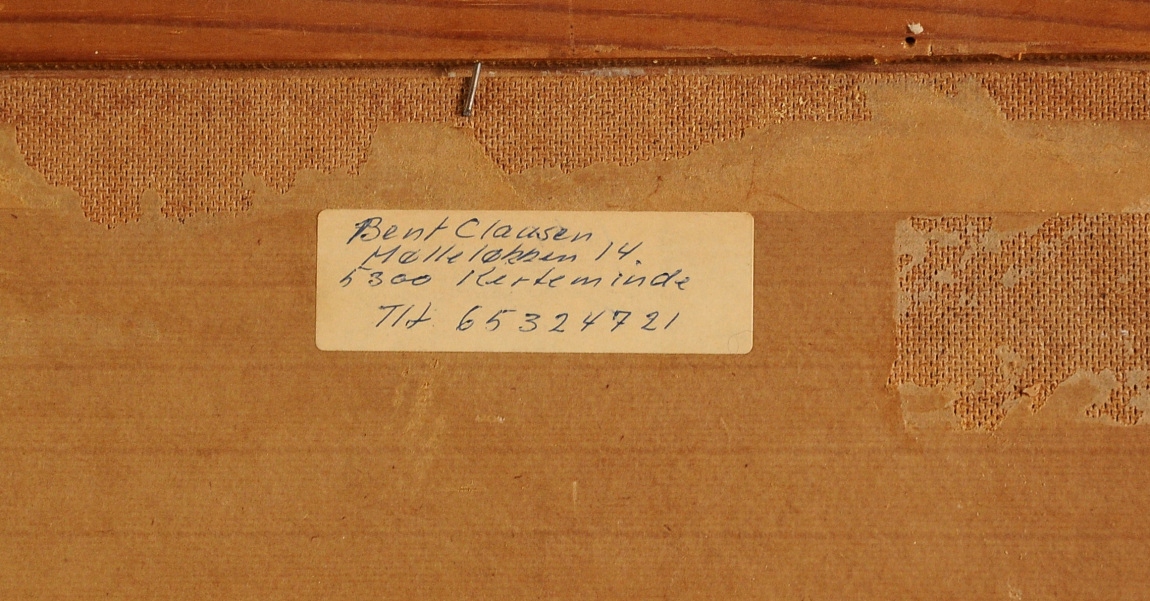 Bent Clausen
Mølleløkken 14.
5300 Kerteminde
Tlf 65324721